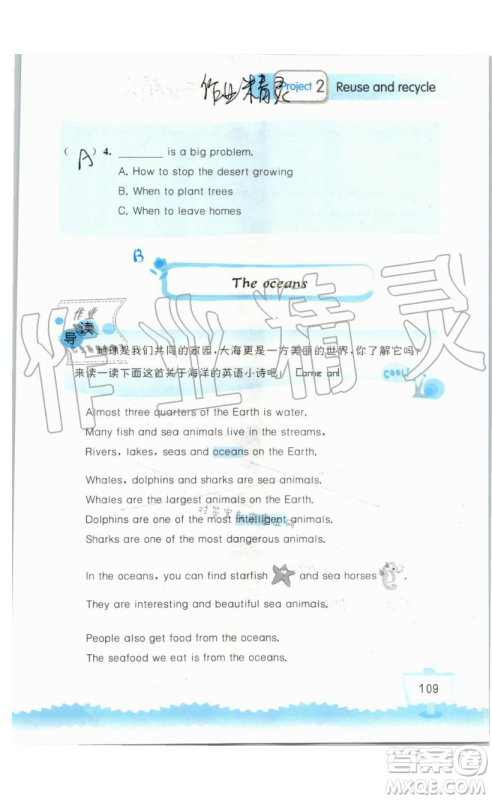 作业精灵 Project 2 Reuse and recycle
( A ) 4. ______ is a big problem.
A. How to stop the desert growing
B. When to plant trees
C. When to leave homes
B
The oceans
作业精灵
作业
导读
地球是我们共同的家园,大海更是一方美丽的世界,你了解它吗?
来读一读下面这首关于海洋的英语小诗吧! Come on!
COOL!
Almost three quarters of the Earth is water.
Many fish and sea animals live in the streams,
Rivers, lakes, seas and oceans on the Earth.
Whales, dolphins and sharks are sea animals.
Whales are the largest animals on the Earth.
Dolphins are one of the most intelligent animals.
Sharks are one of the most dangerous animals.
In the oceans, you can find starfish and sea horses
They are interesting and beautiful sea animals.
People also get food from the oceans.
The seafood we eat is from the oceans.
109
答案圈
MXQE.COM